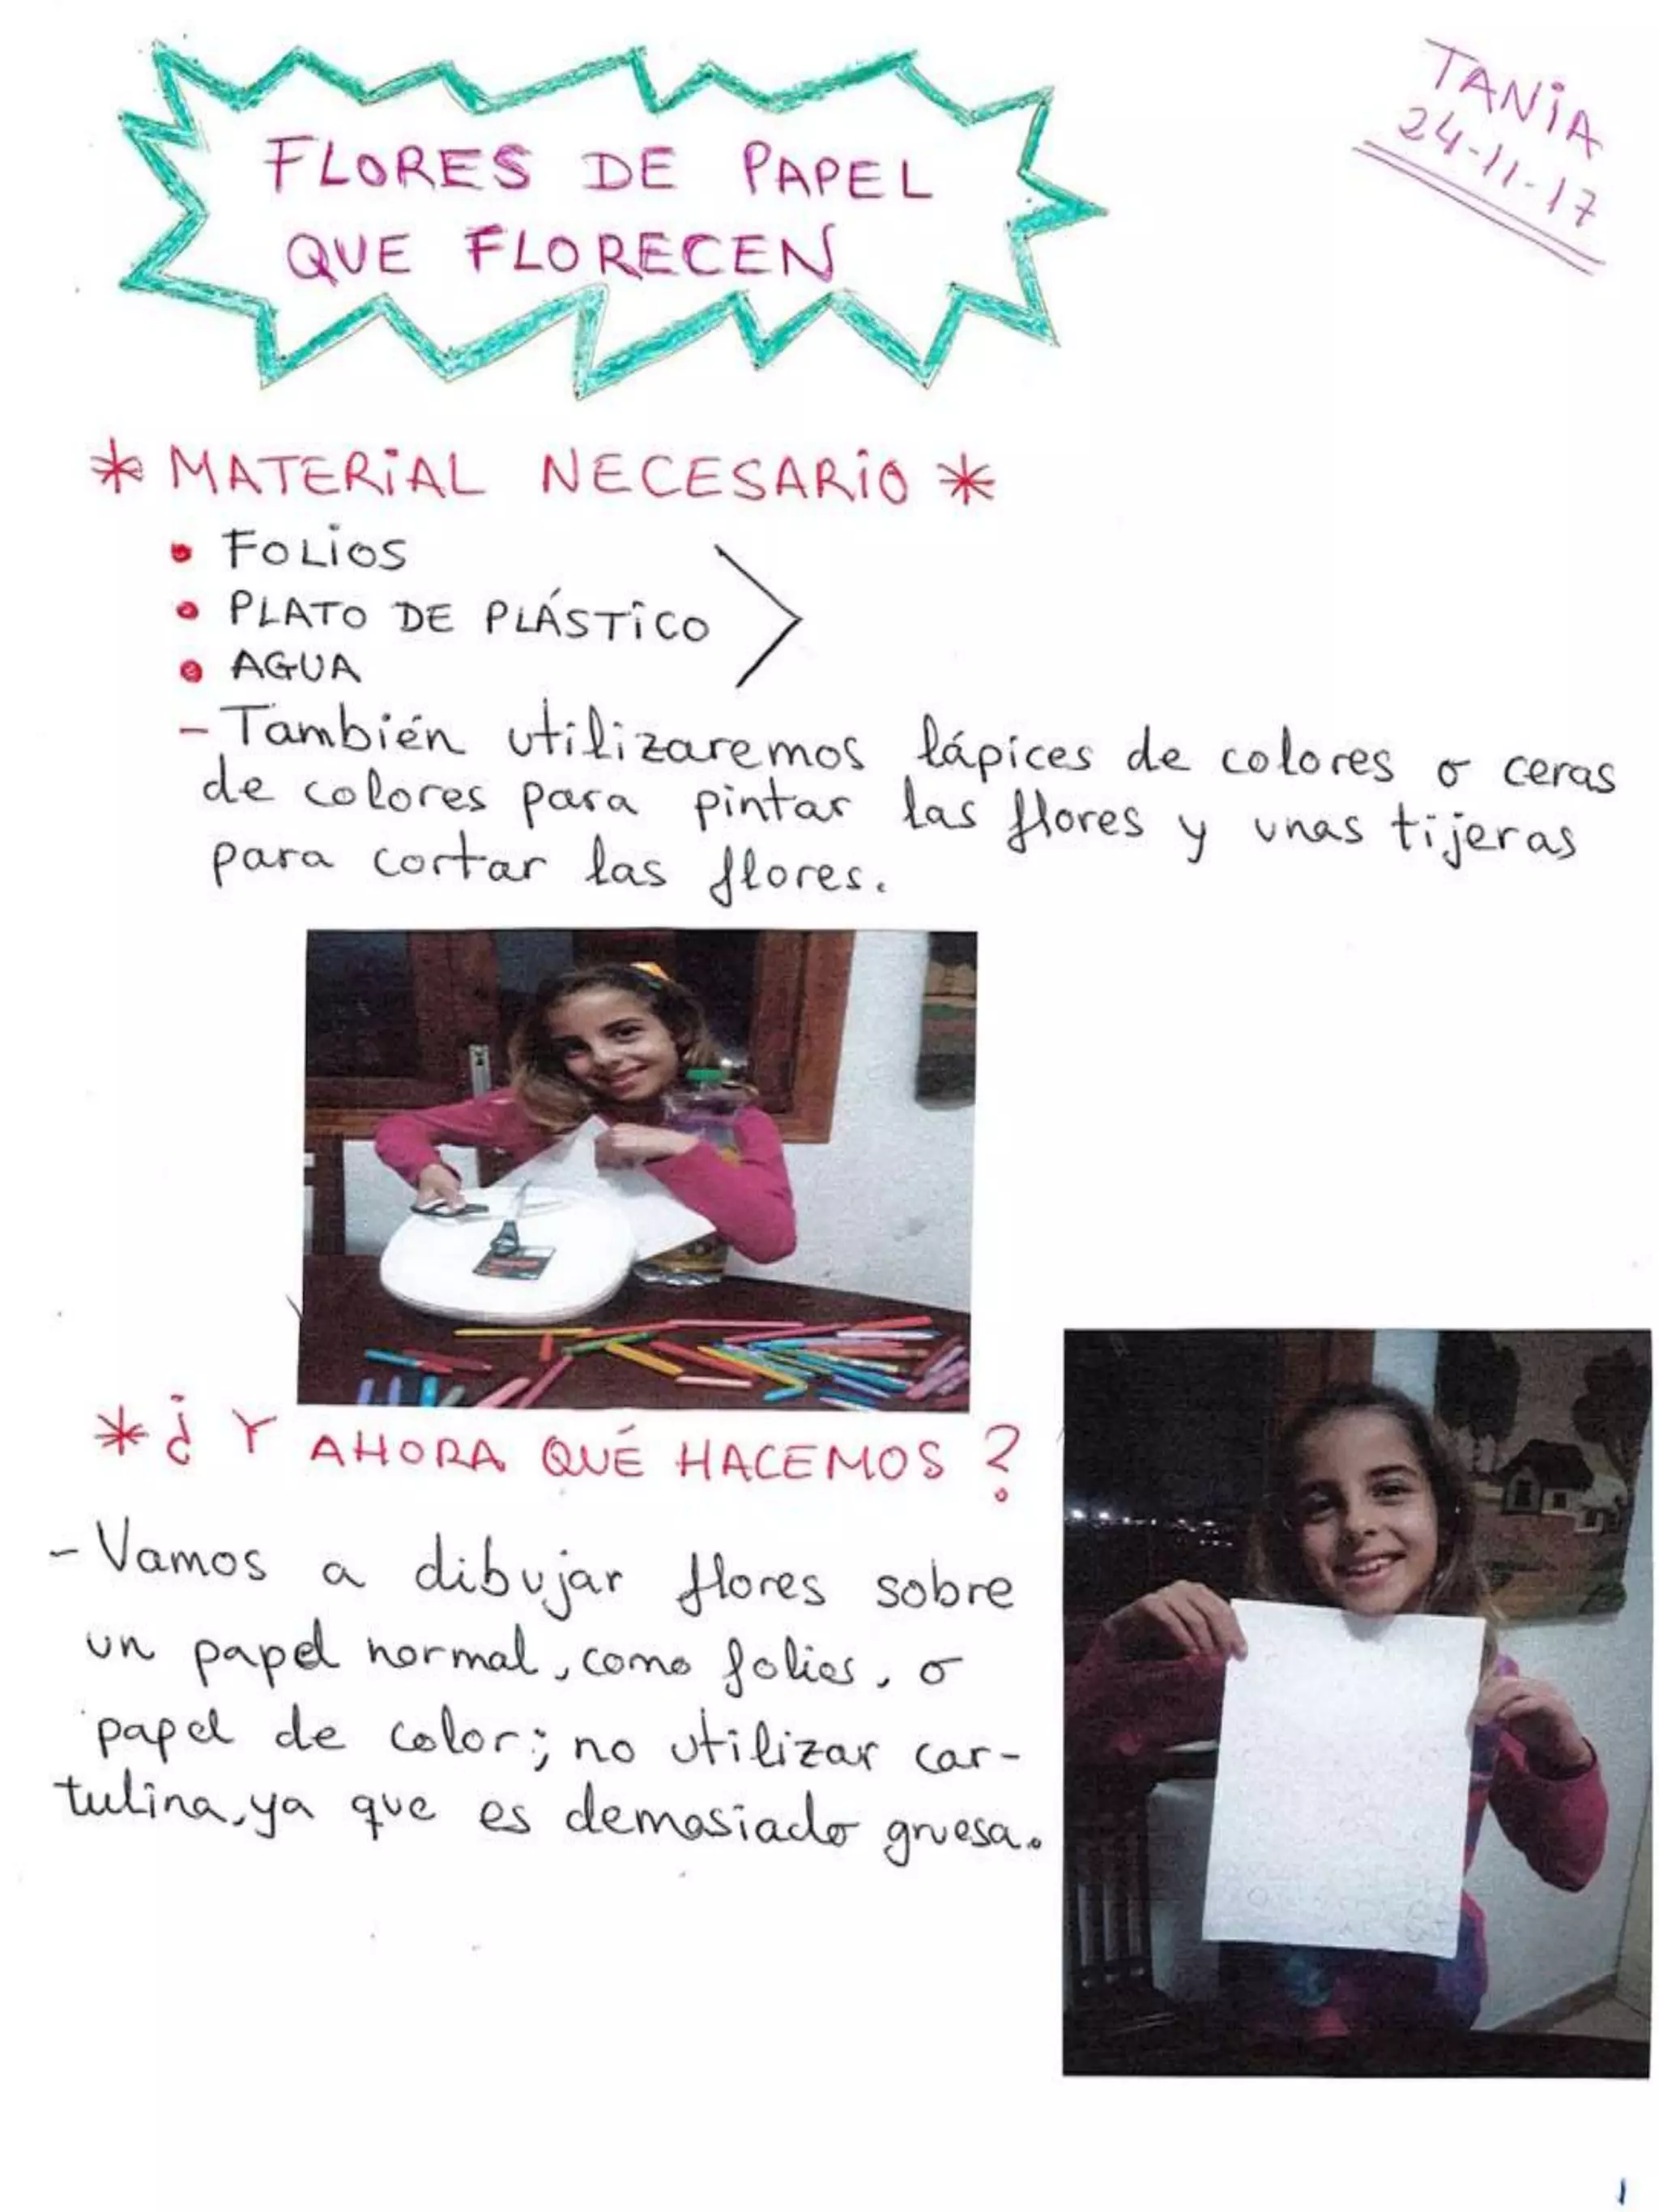 FLORES DE PAPEL
QUE FLORECEN
TANIA
24-11-17
* MATERIAL NECESARIO *
• FOLIOS
• PLATO DE PLÁSTICO
• AGUA
- También utilizaremos lápices de colores o ceras
de colores para pintar las flores y unas tijeras
para cortar las flores.
* ¿Y AHORA QUÉ HACEMOS?
- Vamos a dibujar flores sobre
un papel normal, como folios, o
papel de color; no utilizar car-
tulina, ya que es demasiado gruesa.
1